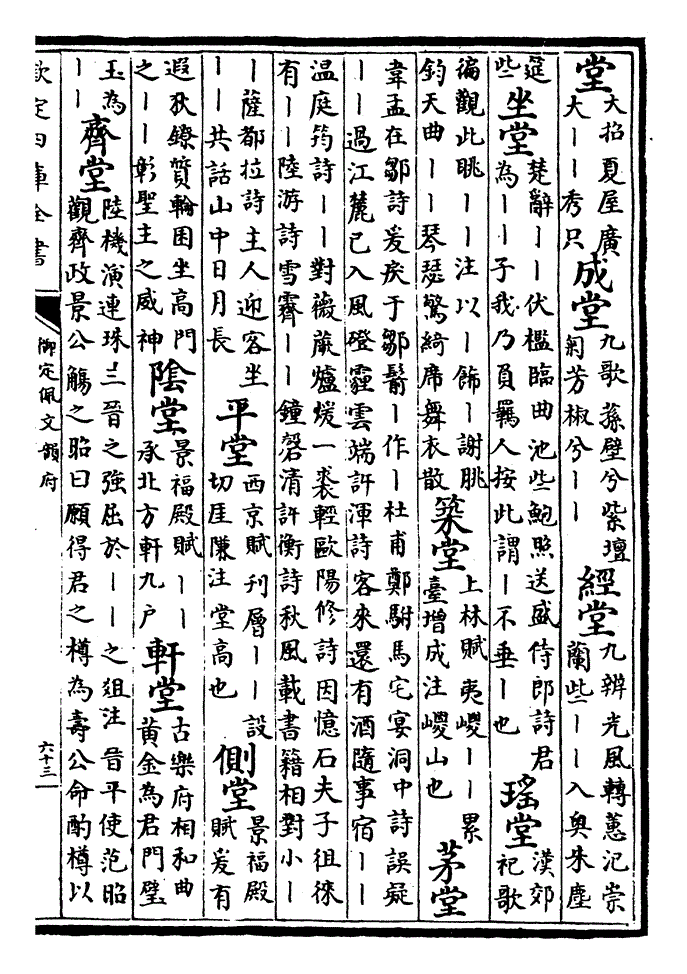 堂大招夏屋廣
大丨丨秀只
成堂九歌蓀壁兮紫壇
匊芳椒兮丨丨
經堂九辨光風轉蕙氾崇
蘭些丨丨入奥朱塵
筵
些
坐堂楚辭丨丨伏檻臨曲池些鮑照送盛侍郎詩君
為丨丨子我乃負羈人按此謂丨不垂丨也
瑤堂漢郊
祀歌
徧觀此眺丨丨注以丨飾丨謝朓
鈞天曲丨丨琴瑟驚綺席舞衣散
築堂上林賦夷嵕丨丨累
臺增成注嵕山也
茅堂
韋孟在鄒詩爰戾于鄒鬋丨作丨杜甫鄭駙馬宅宴洞中詩誤疑
丨丨過江麓已入風磴霾雲端許渾詩客來還有酒隨事宿丨丨
温庭筠詩丨丨對薇蕨爐煖一裘輕歐陽修詩因憶石夫子徂徠
有丨丨陸游詩雪霽丨丨鐘磬清許衡詩秋風載書籍相對小丨
丨薩都拉詩主人迎客坐
丨丨共話山中日月長
平堂西京賦刋層丨丨設
切厓隒注堂高也
側堂景福殿
賦爰有
遐狄鐐質輪囷坐高門
之丨丨彰聖主之威神
陰堂景福殿賦丨丨
承北方軒九户
軒堂古樂府相和曲
黄金為君門璧
玉為
丨丨
齊堂陸機演連珠三晉之強屈於丨丨之俎注晉平使范昭
觀齊政景公觴之昭曰願得君之樽為壽公命酌樽以
欽定四庫全書
御定佩文韻府
六十三一